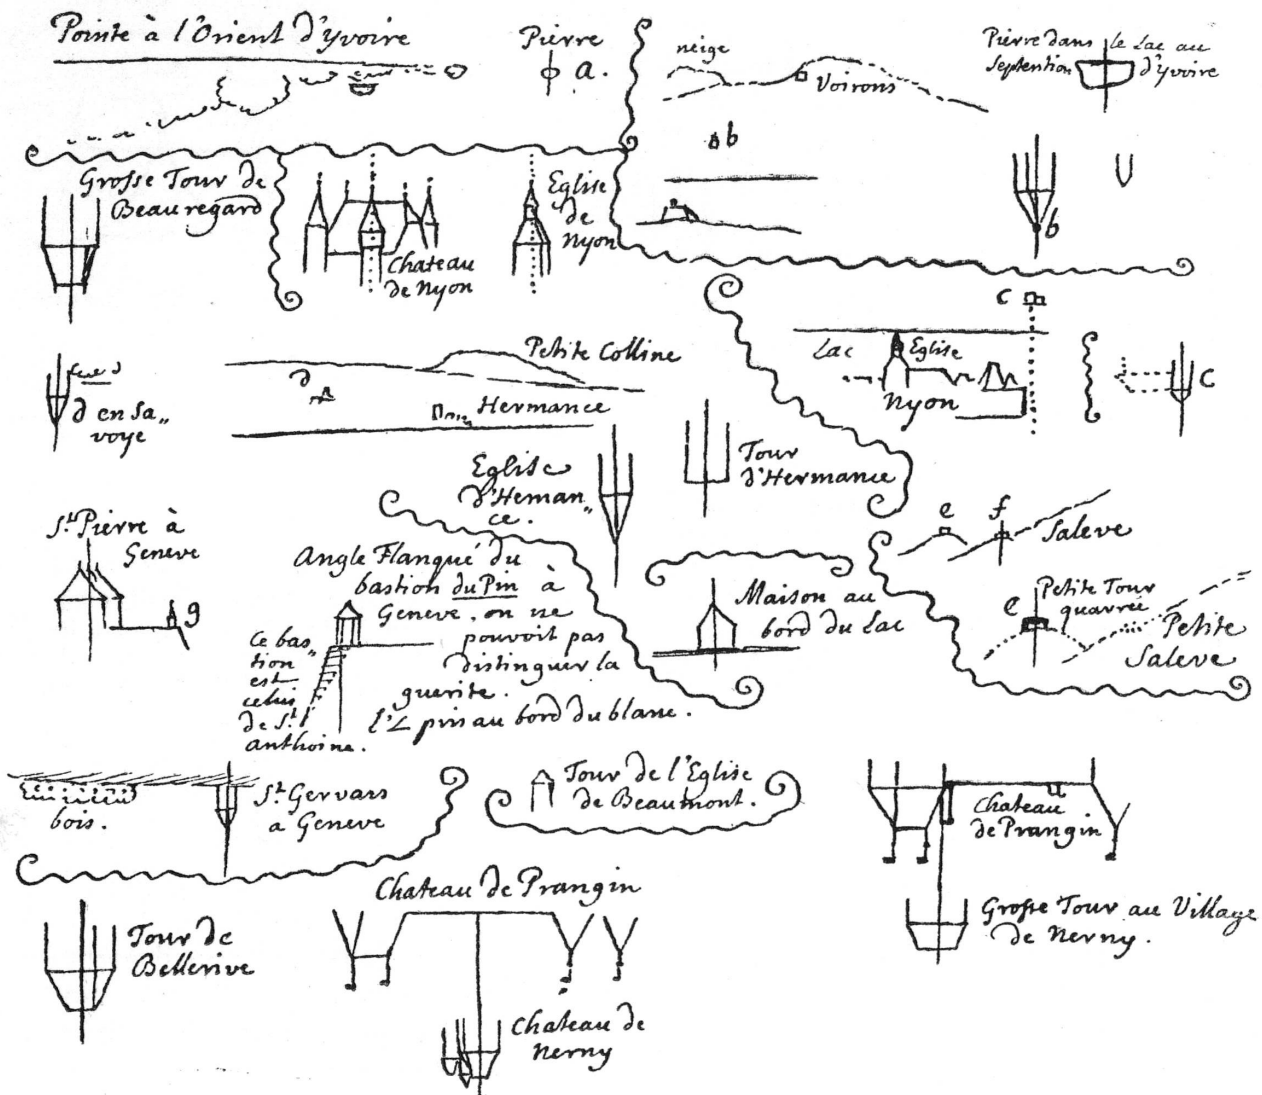 Pointe à l'Orient d'yvoire
Pierre
a.
neige
Voirons
Pierre dans le Lac au
Septention d'yvoire
b
b
Grosse Tour de
Beauregard
Chateau
de Nyon
Eglise
de
Nyon
c
Lac
Eglise
Nyon
C
Petite Colline
d
Hermance
d en Sa„
voye
Tour
d'Hermance
Eglise
d'Heman„
ce.
e
f
Saleve
e
Petite Tour
quarrée
Petite
Saleve
St. Pierre à
Geneve
g
Angle Flanqué du
bastion du Pin à
Geneve. on ne
pouvoit pas
distinguer la
guerite.
l'∠ pris au bord du blanc.
Ce bas„
tion
est
celui
de St.
anthoine.
Maison au
bord du Lac
bois.
St. Gervais
a Geneve
Tour de l'Eglise
de Beaumont.
Chateau
de Prangin
Grosse Tour au Village
de Nerny.
Tour de
Bellerive
Chateau de Prangin
Chateau de
Nerny